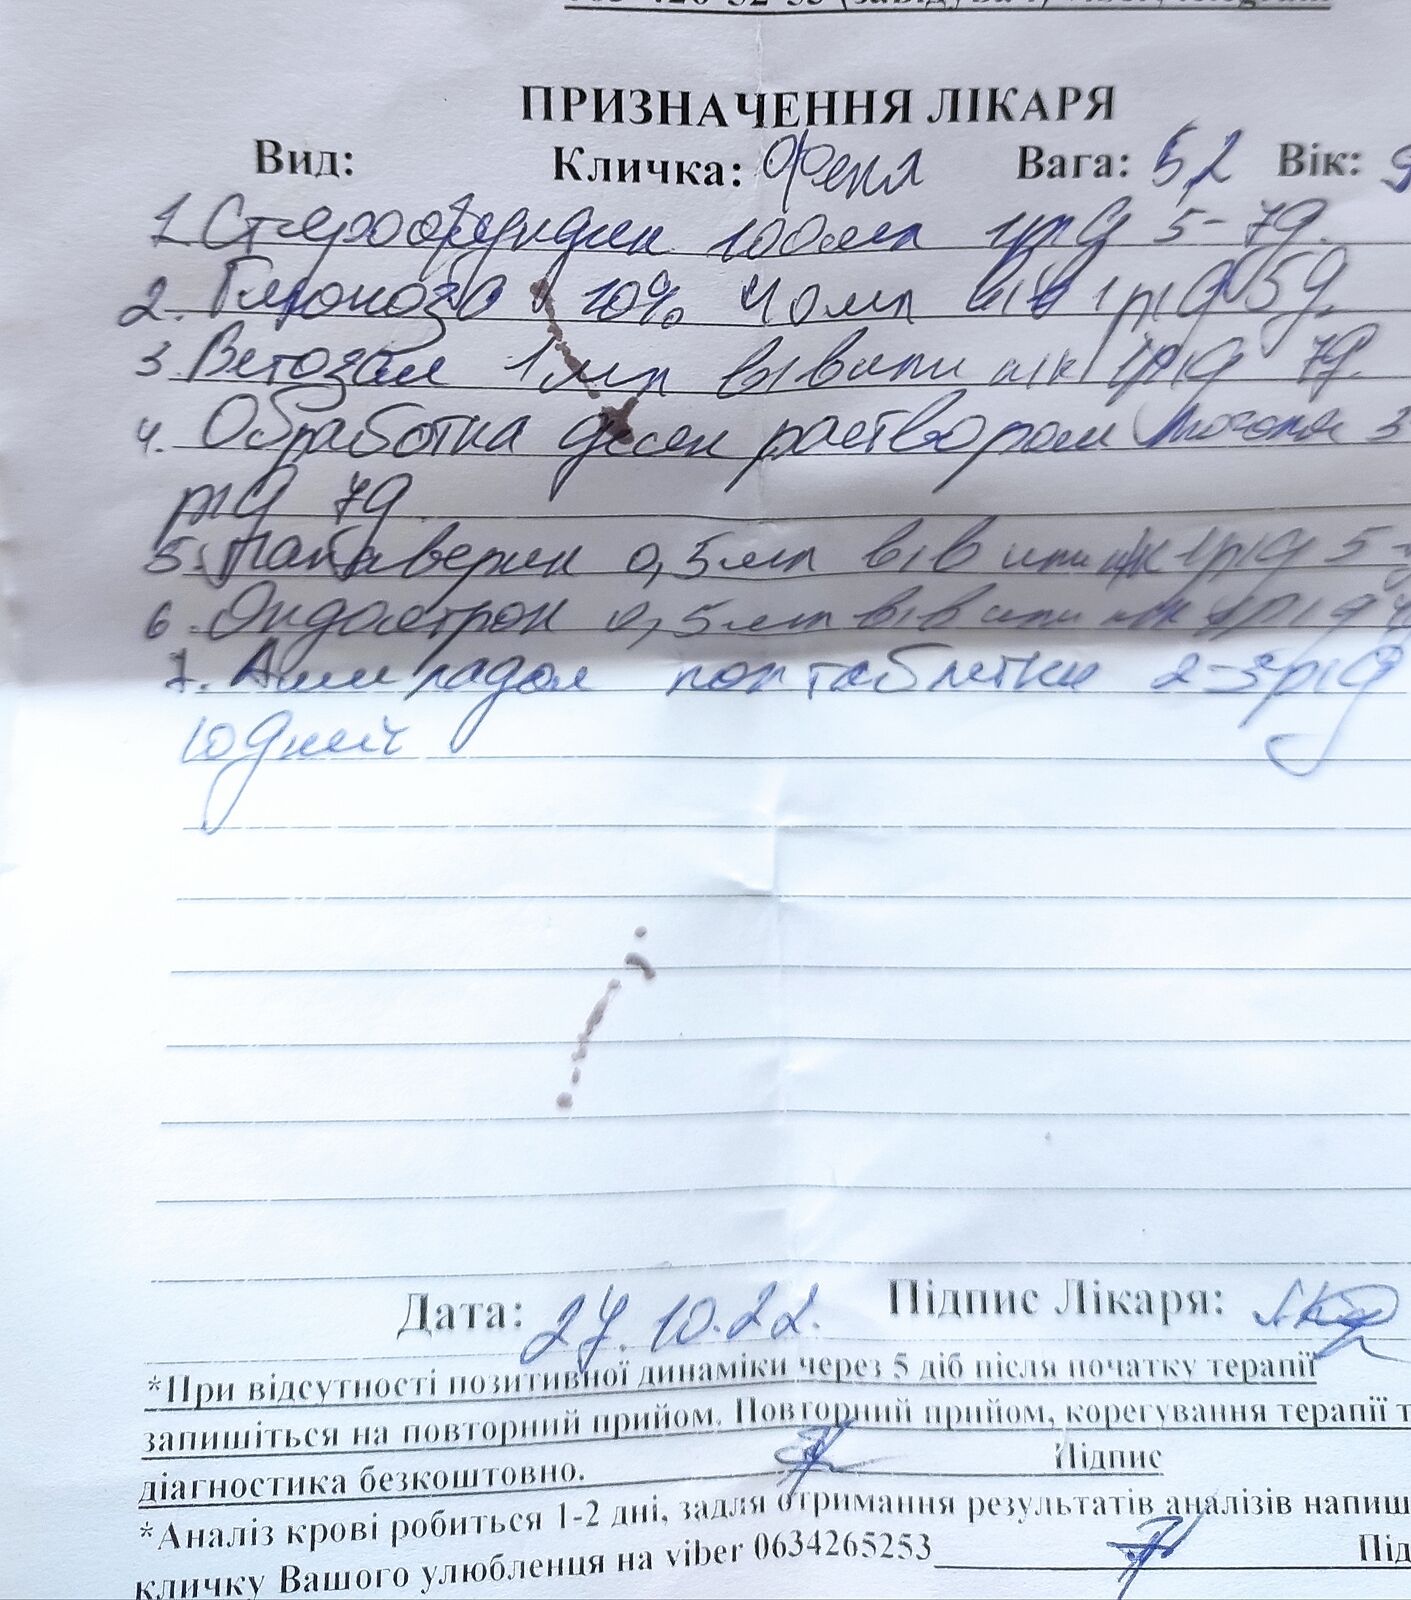 ПРИЗНАЧЕННЯ ЛІКАРЯ
Вид: Кличка: Феня Вага: 5,2 Вік: 9
1. Стерофундин 100мл 1р/д 5-7д.
2. Глюкоза 10% 40мл в/в 1р/д 5д.
3. Ветозал 1мл в/в или п/к 1р/д 7д.
4. Обработка десен раствором 3
р/д 7д
5. Папаверин 0,5мл в/в или п/к 1р/д 5-
6. 0,5мл в/в или п/к р/д
7. пол таблетки 2-3р/д
10 дней
Дата: 27.10.22. Підпис Лікаря:
*При відсутності позитивної динаміки через 5 діб після початку терапії
запишіться на повторний прийом. Повторний прийом, корегування терапії т
діагностика безкоштовно. Підпис
*Аналіз крові робиться 1-2 дні, задля отримання результатів аналізів напиш
кличку Вашого улюбленця на viber 0634265253 Під